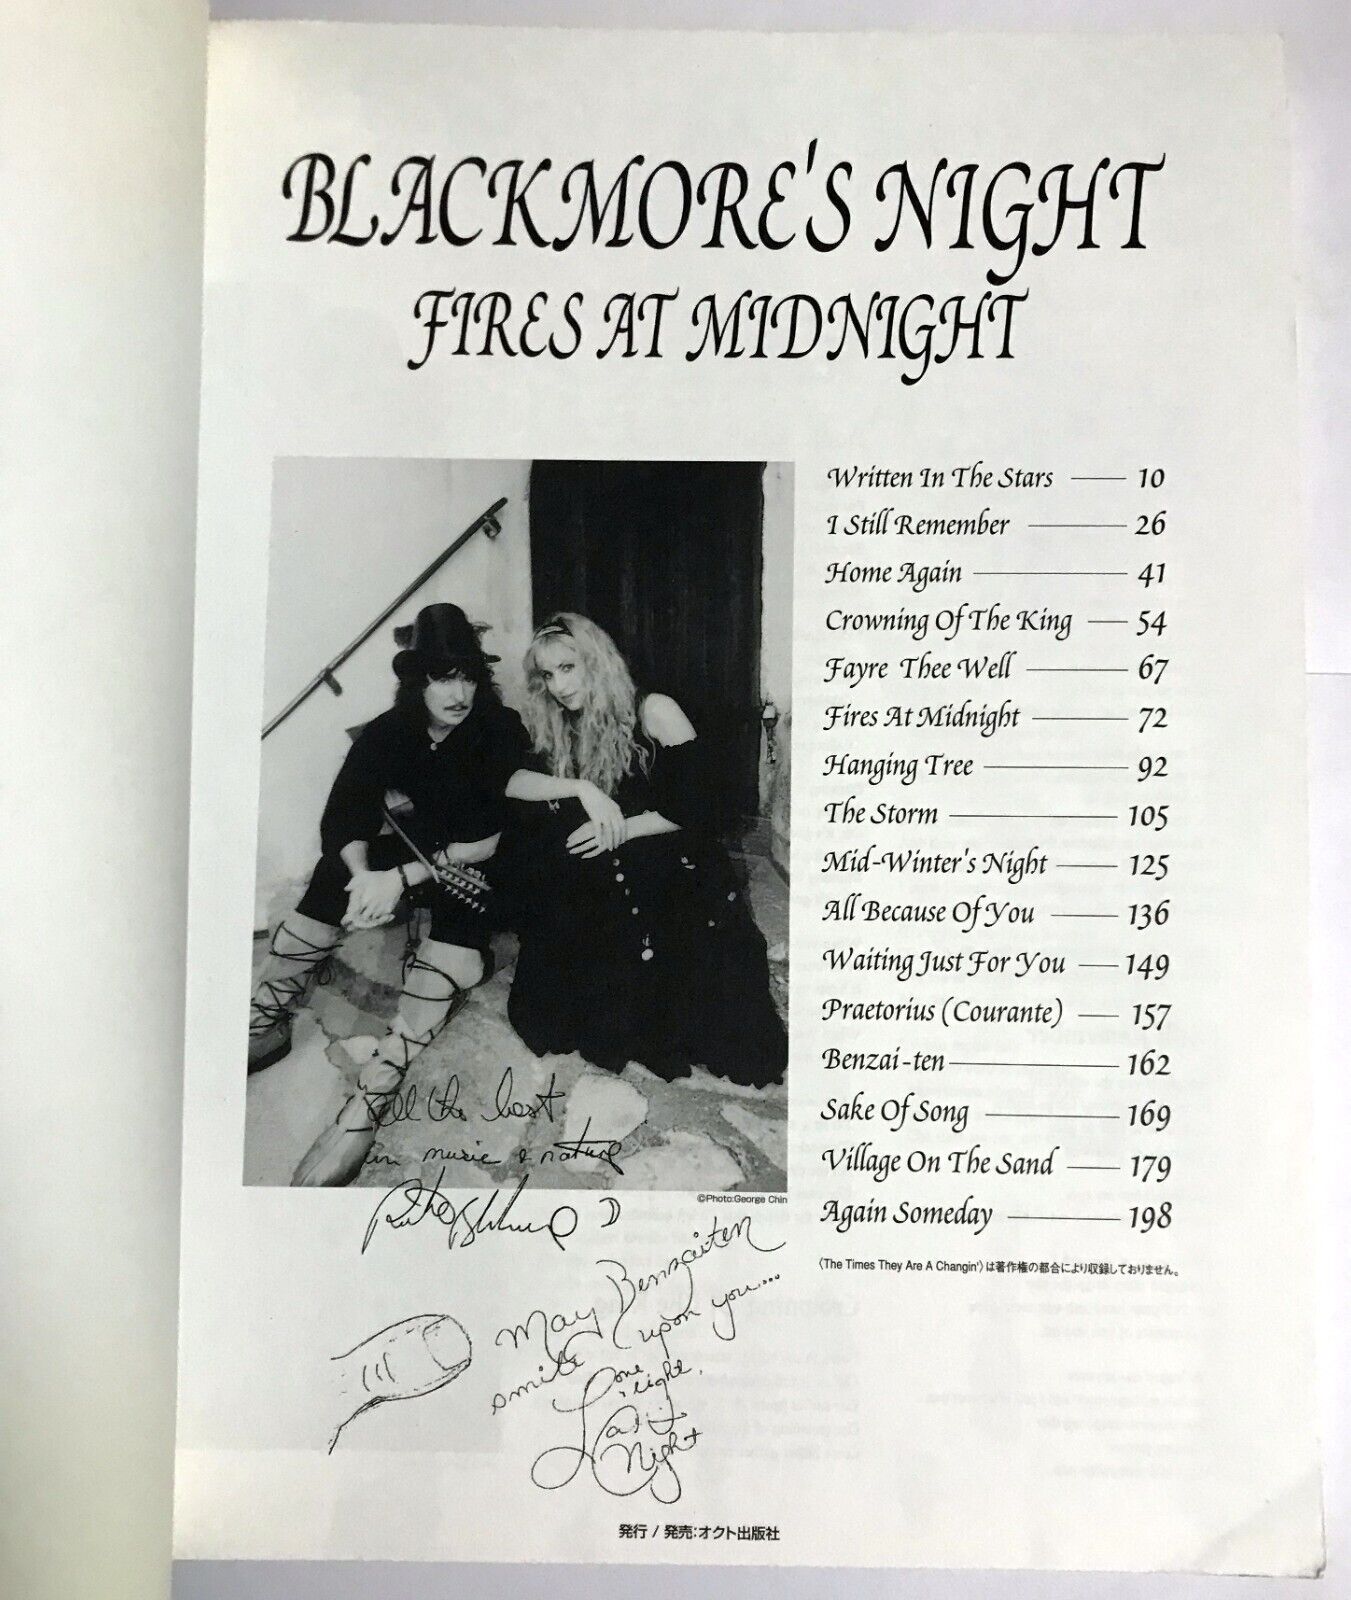 BLACKMORE'S NIGHT
FIRES AT MIDNIGHT
Written In The Stars 10
I Still Remember 26
Home Again 41
Crowning Of The King 54
Fayre Thee Well 67
Fires At Midnight 72
Hanging Tree 92
The Storm 105
Mid-Winter's Night 125
All Because Of You 136
Waiting Just For You 149
Praetorius (Courante) 157
Benzai-ten 162
Sake Of Song 169
Village On The Sand 179
Again Someday 198
〈The Times They Are A Changin'〉は著作権の都合により収録しておりません。
©Photo:George Chin
All the best
in music & nature
May Benzaiten
smile upon you...
Love
& light,
Lady
Night
発行 / 発売:オクト出版社